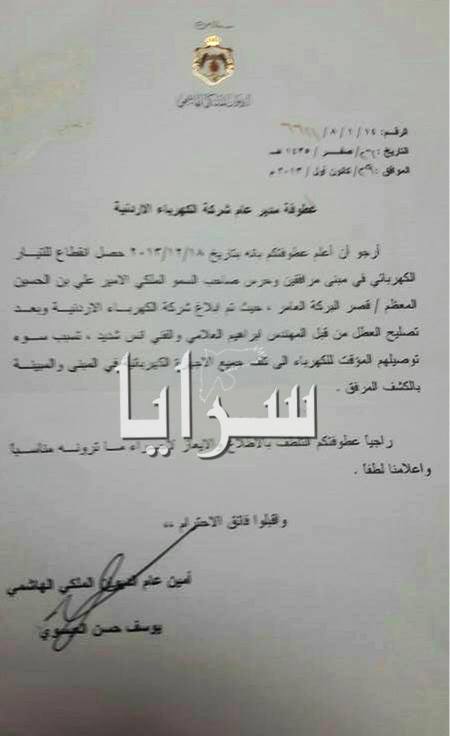 الديوان الملكي الهاشمي
الرقم: ١٤ / ١ / ٨ /
التاريخ: / صفر / ١٤٣٥ هـ
الموافق: / كانون أول / ٢٠١٣ م
عطوفة مدير عام شركة الكهرباء الاردنية
أرجو أن أعلم عطوفتكم بانه بتاريخ ٢٠١٣/١٢/١٨ حصل انقطاع للتيار
الكهربائي في مبنى مرافقين وحرس صاحب السمو الملكي الامير علي بن الحسين
المعظم / قصر البركة العامر ، حيث تم ابلاغ شركة الكهرباء الاردنية وبعد
تصليح العطل من قبل المهندس ابراهيم العلامي والفني انس شديد ، تسبب سوء
توصيلهم المؤقت للكهرباء الى تلف جميع الاجهزة الكهربائية في المبنى والمبينة
بالكشف المرفق .
سرايا
راجياً عطوفتكم التلطف بالاطلاع والايعاز لاجراء ما ترونه مناسباً
واعلامنا لطفاً .
واقبلوا فائق الاحترام ،،
أمين عام الديوان الملكي الهاشمي
يوسف حسن العيسوي